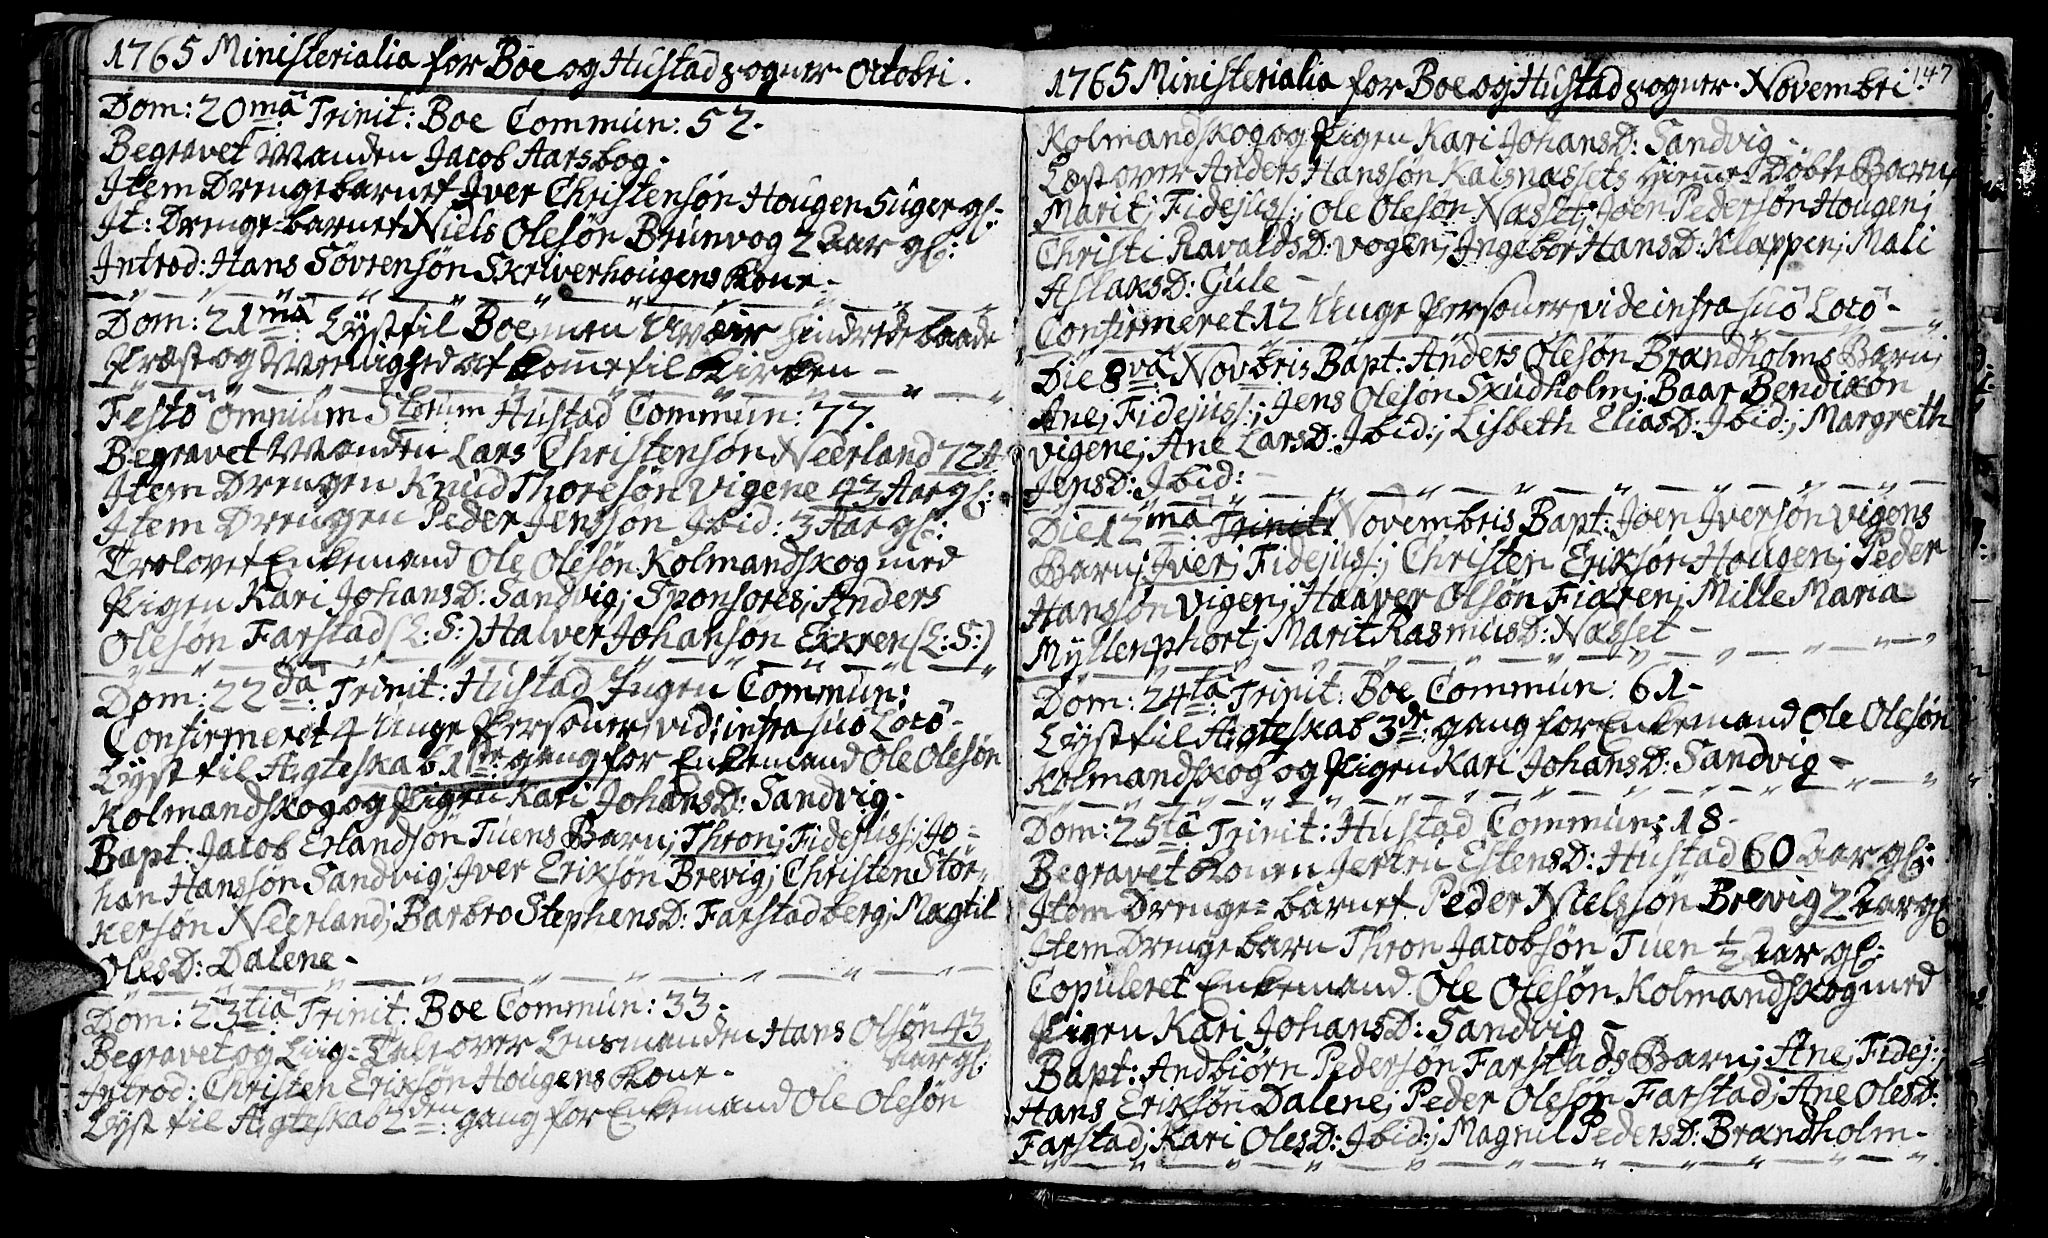 1765 Ministerialia for Boe og Hustad Sogner Octobri.
Dom: 20mâ Trinit: Boe Commun: 52.
Begravet Manden Jacob Aarsbog.
Item Drengebarnet Iver Christensøn Hougen 5 Uger gl:
It: Drenge-barnet Niels Olesøn Brunvog 2 Aar gl:
Introd: Hans Sövrensøn Skriverhougens Kone.
Dom: 21mâ Lyst til Boe, men Uveir hindrede baade
Præst og Menighed at komme til Kirken
Festô Omnium Storum Hustad Commun: 77.
Begravet Manden Lars Christensøn Neerland 72 A
Item Drengen Knud Thoresøn Vigene 43 Aar gl:
Item Drengen Peder Jenssøn Ibid: 3 Aar gl:
Trolovet Enkemand Ole Olesøn Kolmandskog med
Pigen Kari JohansD: Sandvig; Sponsores; Anders
Olesøn Farstad (L:S:) Halver Johansøn Exren (L:S:)
Dom: 22dâ Trinit: Hustad Ingen Commun:
Confirmeret 4 Unge Personer, vid: infra suô Locô
Lyst til Ægteskab 1ste gang for Enkemand Ole Olesøn
Kolmandskog og Pigen Kari JohansD: Sandvig.
Bapt: Jacob Erlandsøn Tuens Barn; Thron; Fidejuss:; Jo-
han Hanssøn Sandvig; Iver Eriksøn Brevig; Christen Stör-
kersøn Neerland; Barbro StephensD: Farstadberg; Magtil
OlesD: Dalene
Dom: 23tiâ Trinit: Boe Commun: 33.
Begravet og Liig-Tale over Lensmanden Hans Olsøn 43
Aar gl:
Introd: Christen Eriksøn Hougens Kone.
Lyst til Ægteskab 2den gang for Enkemand Ole Olesøn
147
1765 Ministerialia for Boe og Hustad Sogner Novembri.
Kolmandskog og Pigen Kari JohansD: Sandvig
Læst over Anders Hanssøn Kalsnæssets Hiemme Döbte Barn
Marit; Fidejuss:; Ole Olesøn Næsset; Joen Pedersøn Hougen;
Christi RavaldsD: Vogen; Ingebor HansD: Klappen; Mali
AslaksD: Gule
Confirmeret 12 Unge Personer, vide infra suô Locô
Die 8vâ Novbris Bapt: Anders Olesøn Brandholms Barn;
Ane; Fidejuss:; Jens Olesøn Skudholm; Baar Bendixøn
Vigene; Ane LarsD: Ibid:; Lisbeth EliasD: Ibid:; Margreth
JensD: Ibid:
Die 12mâ Trinit: Novembris Bapt: Joen Iversøn Vigens
Barn; Iver; Fidejuss:; Christen Eriksøn Hougen; Peder
Hanssøn Vigen; Haaver Olsøn Fiæren; Mille Maria
Myllenphort; Marit RasmusD: Næsset
Dom: 24tâ Trinit: Boe Commun: 61
Lyst til Ægteskab 3de gang for Enkemand Ole Olesøn
Kolmandskog og Pigen Kari JohansD: Sandvig
Dom: 25tâ Trinit: Hustad Commun: 18
Begravet Konen Jertru EstensD: Hustad 60 Aar gl:
Item Drenge-barnet Peder Nielssøn Brevig 2 Aar gl
Item Drenge barn Thron Jacobsøn Tuen 1/2 Aar gl:
Copuleret Enkemand Ole Olesøn Kolmandskog med
Pigen Kari JohansD: Sandvig
Bapt: Andbiørn Pedersøn Farstads Barn; Ane; Fidej:;
Hans Eriksøn Dalene; Peder Olesøn Farstad; Ane OlesD:
Farstad; Kari OlesD: Ibid:; Magnil PedersD: Brandholm